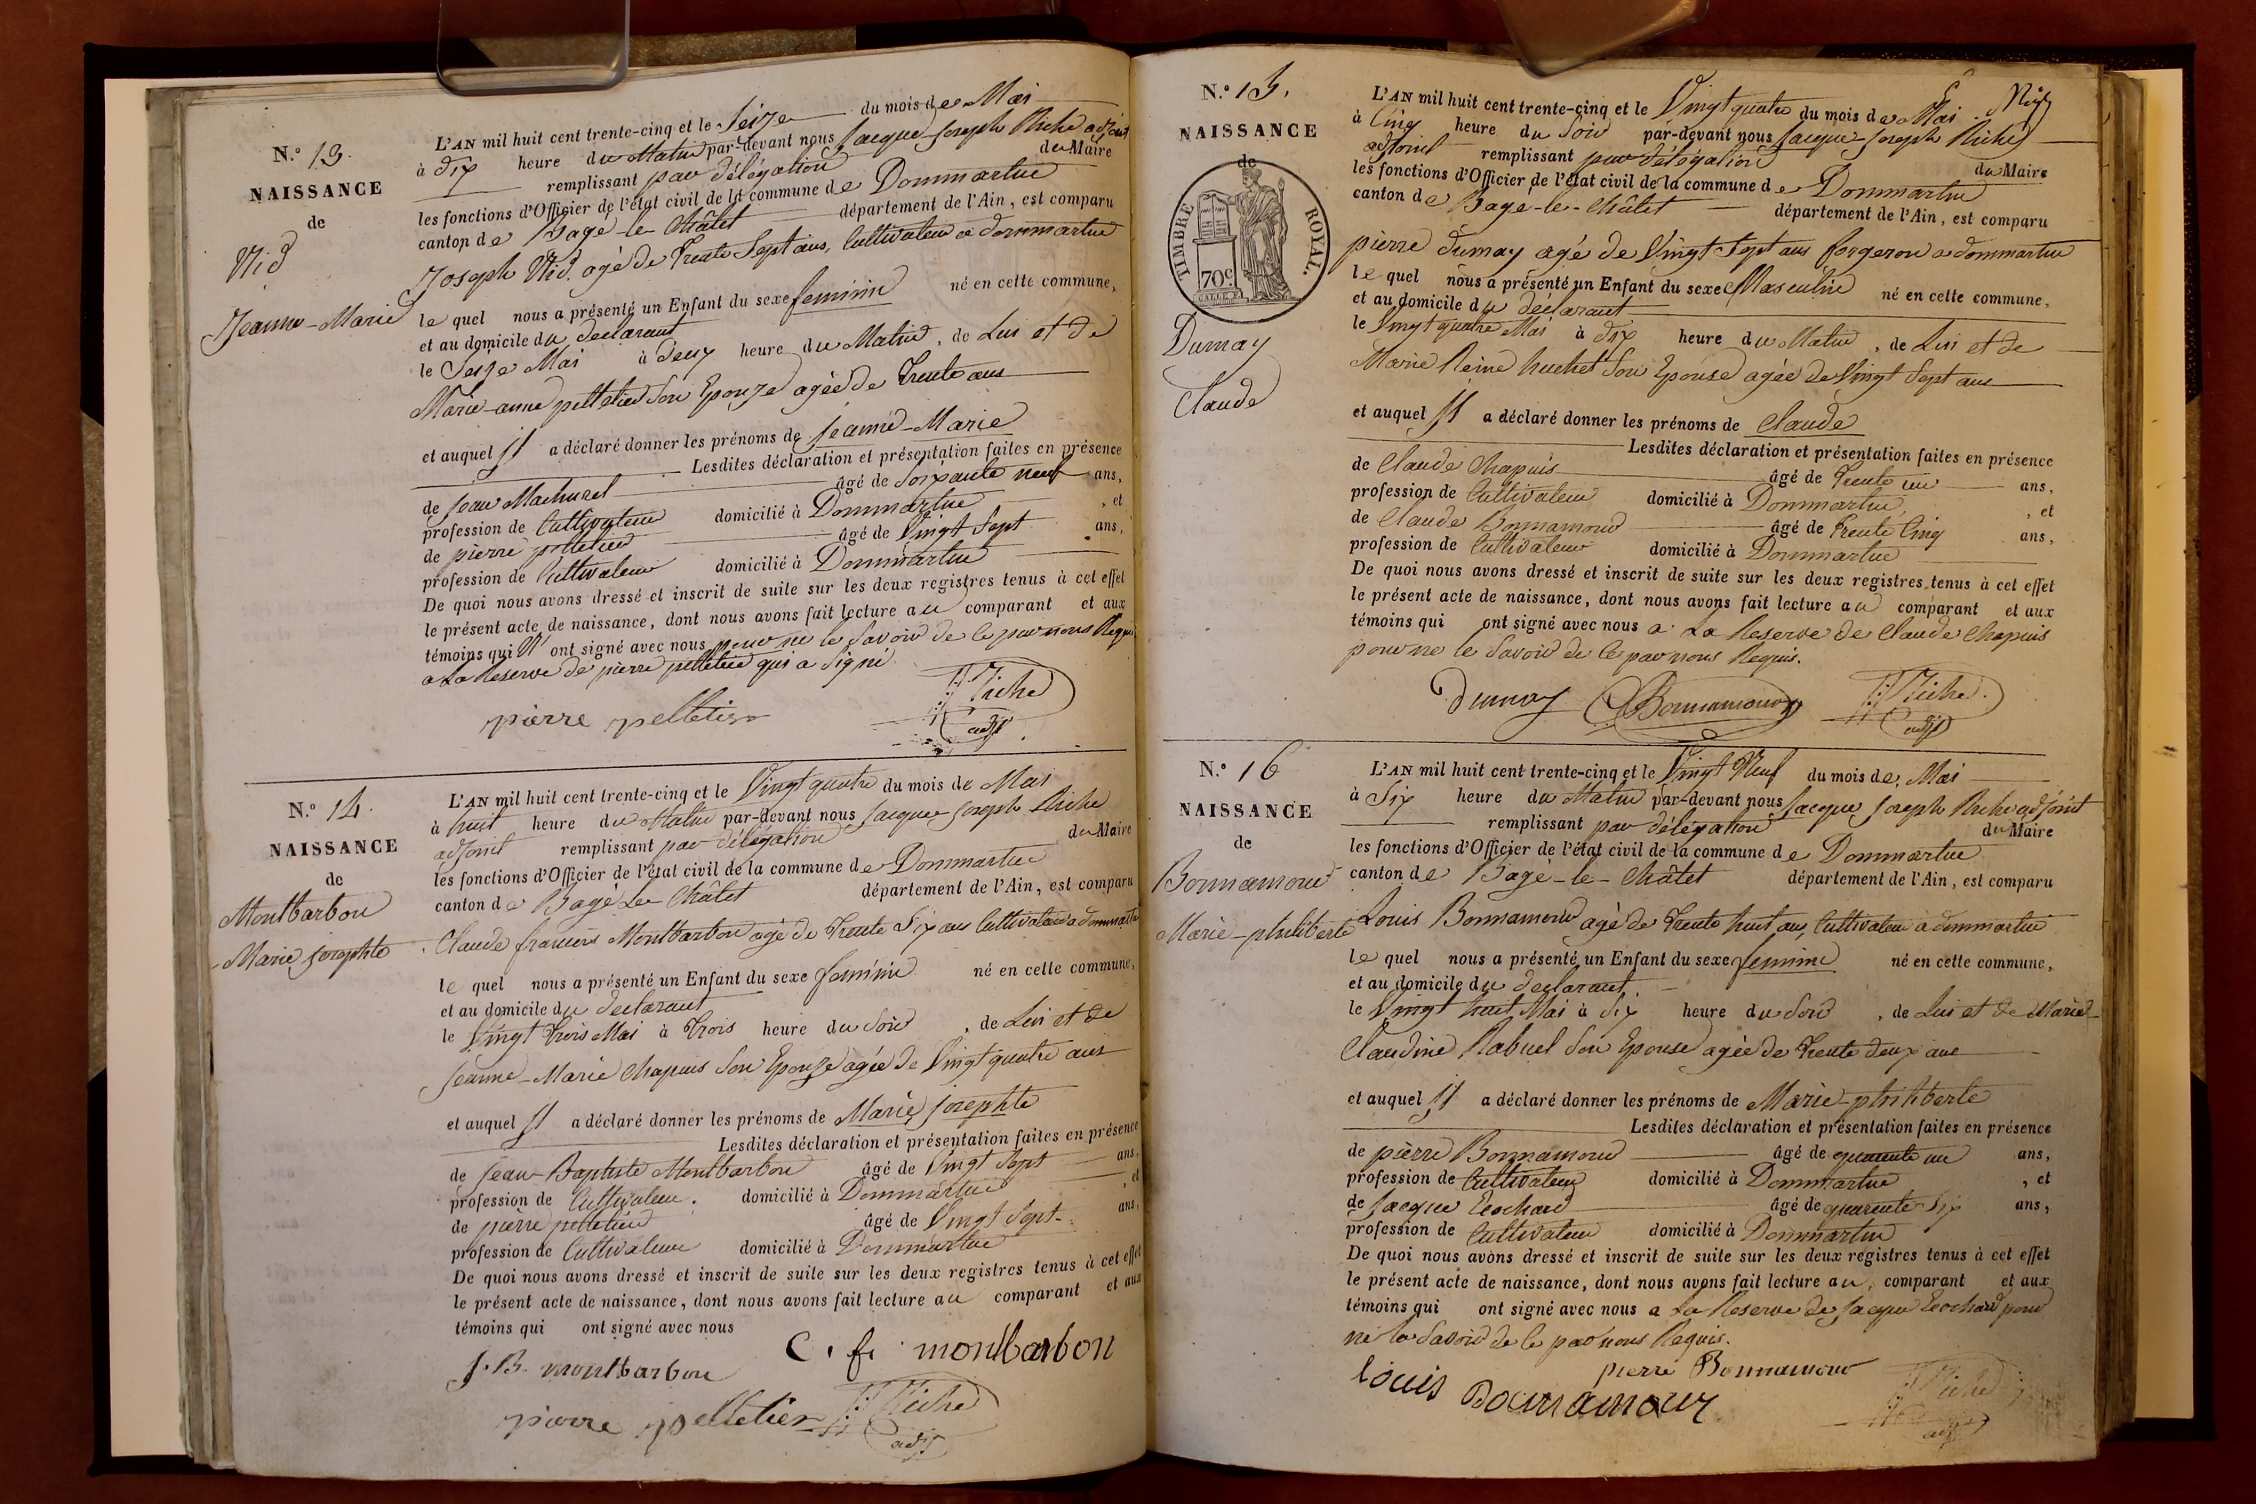 N.° 13.
NAISSANCE
de
Nid
Jeanne-Marie
L'AN mil huit cent trente-cinq et le Seize du mois de Mai
à dix heure du Matin par-devant nous Jacque Joseph Riche adjoint
remplissant par délégation du Maire
les fonctions d'Officier de l'état civil de la commune de Dommartin
canton de Bagé-le-Châtet département de l'Ain, est comparu
Joseph Nid. agé de trente Sept ans, Cultivateur a dommartin
le quel nous a présenté un Enfant du sexe feminin né en cette commune,
et au domicile du declarant
le Seize Mai à deux heure du Matin, de Lui et de
Marie-anne pelletier Son Epouze agée de trente ans
et auquel Il a déclaré donner les prénoms de Jeanne-Marie
Lesdites déclaration et présentation faites en présence
de Jean Machurel âgé de Soixante neuf ans,
profession de Cultivateur domicilié à Dommartin, et
de pierre pelletier âgé de Vingt Sept ans,
profession de Cultivateur domicilié à Dommartin
De quoi nous avons dressé et inscrit de suite sur les deux registres tenus à cet effet
le présent acte de naissance, dont nous avons fait lecture au comparant et aux
témoins qui N' ont signé avec nous pour ne le Savoir de ce par nous Requis
a La Reserve de pierre pelletier qui a Signé
pierre pelletier
Riche
adjt
N.° 14.
NAISSANCE
de
Montbarbon
Marie josephte
L'AN mil huit cent trente-cinq et le Vingt quatre du mois de Mai
à huit heure du Matin par-devant nous Jacque Joseph Riche
adjoint remplissant par délégation du Maire
les fonctions d'Officier de l'état civil de la commune de Dommartin
canton de Bagé Le Châtet département de l'Ain, est comparu
Claude francois Montbarbon agé de trente Six ans Cultivateur a dommartin
le quel nous a présenté un Enfant du sexe feminin né en cette commune,
et au domicile du declarant
le Vingt trois Mai à trois heure du Soir, de Lui et de
Jeanne-Marie Chapuis Son Epouze agée de Vingt quatre ans
et auquel Il a déclaré donner les prénoms de Marie josephte
Lesdites déclaration et présentation faites en présence
de Jean-Baptiste Montbarbon âgé de Vingt Sept ans,
profession de Cultivateur. domicilié à Dommartin, et
de pierre pelletier âgé de Vingt Sept ans,
profession de Cultivateur domicilié à Dommartin
De quoi nous avons dressé et inscrit de suite sur les deux registres tenus à cet effet
le présent acte de naissance, dont nous avons fait lecture au comparant et aux
témoins qui ont signé avec nous
C. f. montbarbon
J. B. montbarbon
pierre pelletier
Riche
adjt
N.° 15.
NAISSANCE
de
TIMBRE ROYAL.
70c
Dumay
Claude
L'AN mil huit cent trente-cinq et le Vingt quatre du mois de Mai
à Cinq heure du Soir par-devant nous Jacque Joseph Riche
adjoint remplissant par délégation du Maire
les fonctions d'Officier de l'état civil de la commune de Dommartin
canton de Bagé-le-Châtet département de l'Ain, est comparu
pierre dumay agé de Vingt Sept ans forgeron a dommartin
le quel nous a présenté un Enfant du sexe Masculin né en cette commune,
et au domicile du déclarant
le Vingt quatre Mai à dix heure du Matin, de Lui et de
Marie Reine huchet Son Epouse agée de Vingt Sept ans
et auquel Il a déclaré donner les prénoms de Claude
Lesdites déclaration et présentation faites en présence
de Claude Chapuis âgé de trente un ans,
profession de Cultivateur domicilié à Dommartin, et
de Claude Bonnamour âgé de trente Cinq ans,
profession de Cultivateur domicilié à Dommartin
De quoi nous avons dressé et inscrit de suite sur les deux registres tenus à cet effet
le présent acte de naissance, dont nous avons fait lecture au comparant et aux
témoins qui ont signé avec nous a La Reserve de Claude Chapuis
pour ne le Savoir de ce par nous Requis.
dumay Bonnamour Riche
adjt
N.° 16
NAISSANCE
de
Bonnamour
Marie-philiberte
L'AN mil huit cent trente-cinq et le Vingt Neuf du mois de Mai
à Six heure du Matin par-devant nous Jacque Joseph Riche adjoint
remplissant par délégation du Maire
les fonctions d'Officier de l'état civil de la commune de Dommartin
canton de Bagé-le-Châtet département de l'Ain, est comparu
Louis Bonnamour agé de trente huit ans, Cultivateur a dommartin
le quel nous a présenté un Enfant du sexe feminin né en cette commune,
et au domicile du declarant
le Vingt huit Mai à Six heure du Soir, de Lui et de Marie-
Claudine Rabuel Son Epouse agée de trente deux ans
et auquel Il a déclaré donner les prénoms de Marie-philiberte
Lesdites déclaration et présentation faites en présence
de pierre Bonnamour âgé de quarante un ans,
profession de Cultivateur domicilié à Dommartin, et
de Jacque Ecochard âgé de quarente Six ans,
profession de Cultivateur domicilié à Dommartin
De quoi nous avons dressé et inscrit de suite sur les deux registres tenus à cet effet
le présent acte de naissance, dont nous avons fait lecture au comparant et aux
témoins qui ont signé avec nous a La Reserve de Jacque Ecochard pour
ne le Savoir de ce par nous Requis.
pierre Bonnamour
Louis Bonnamour
Riche
adjt